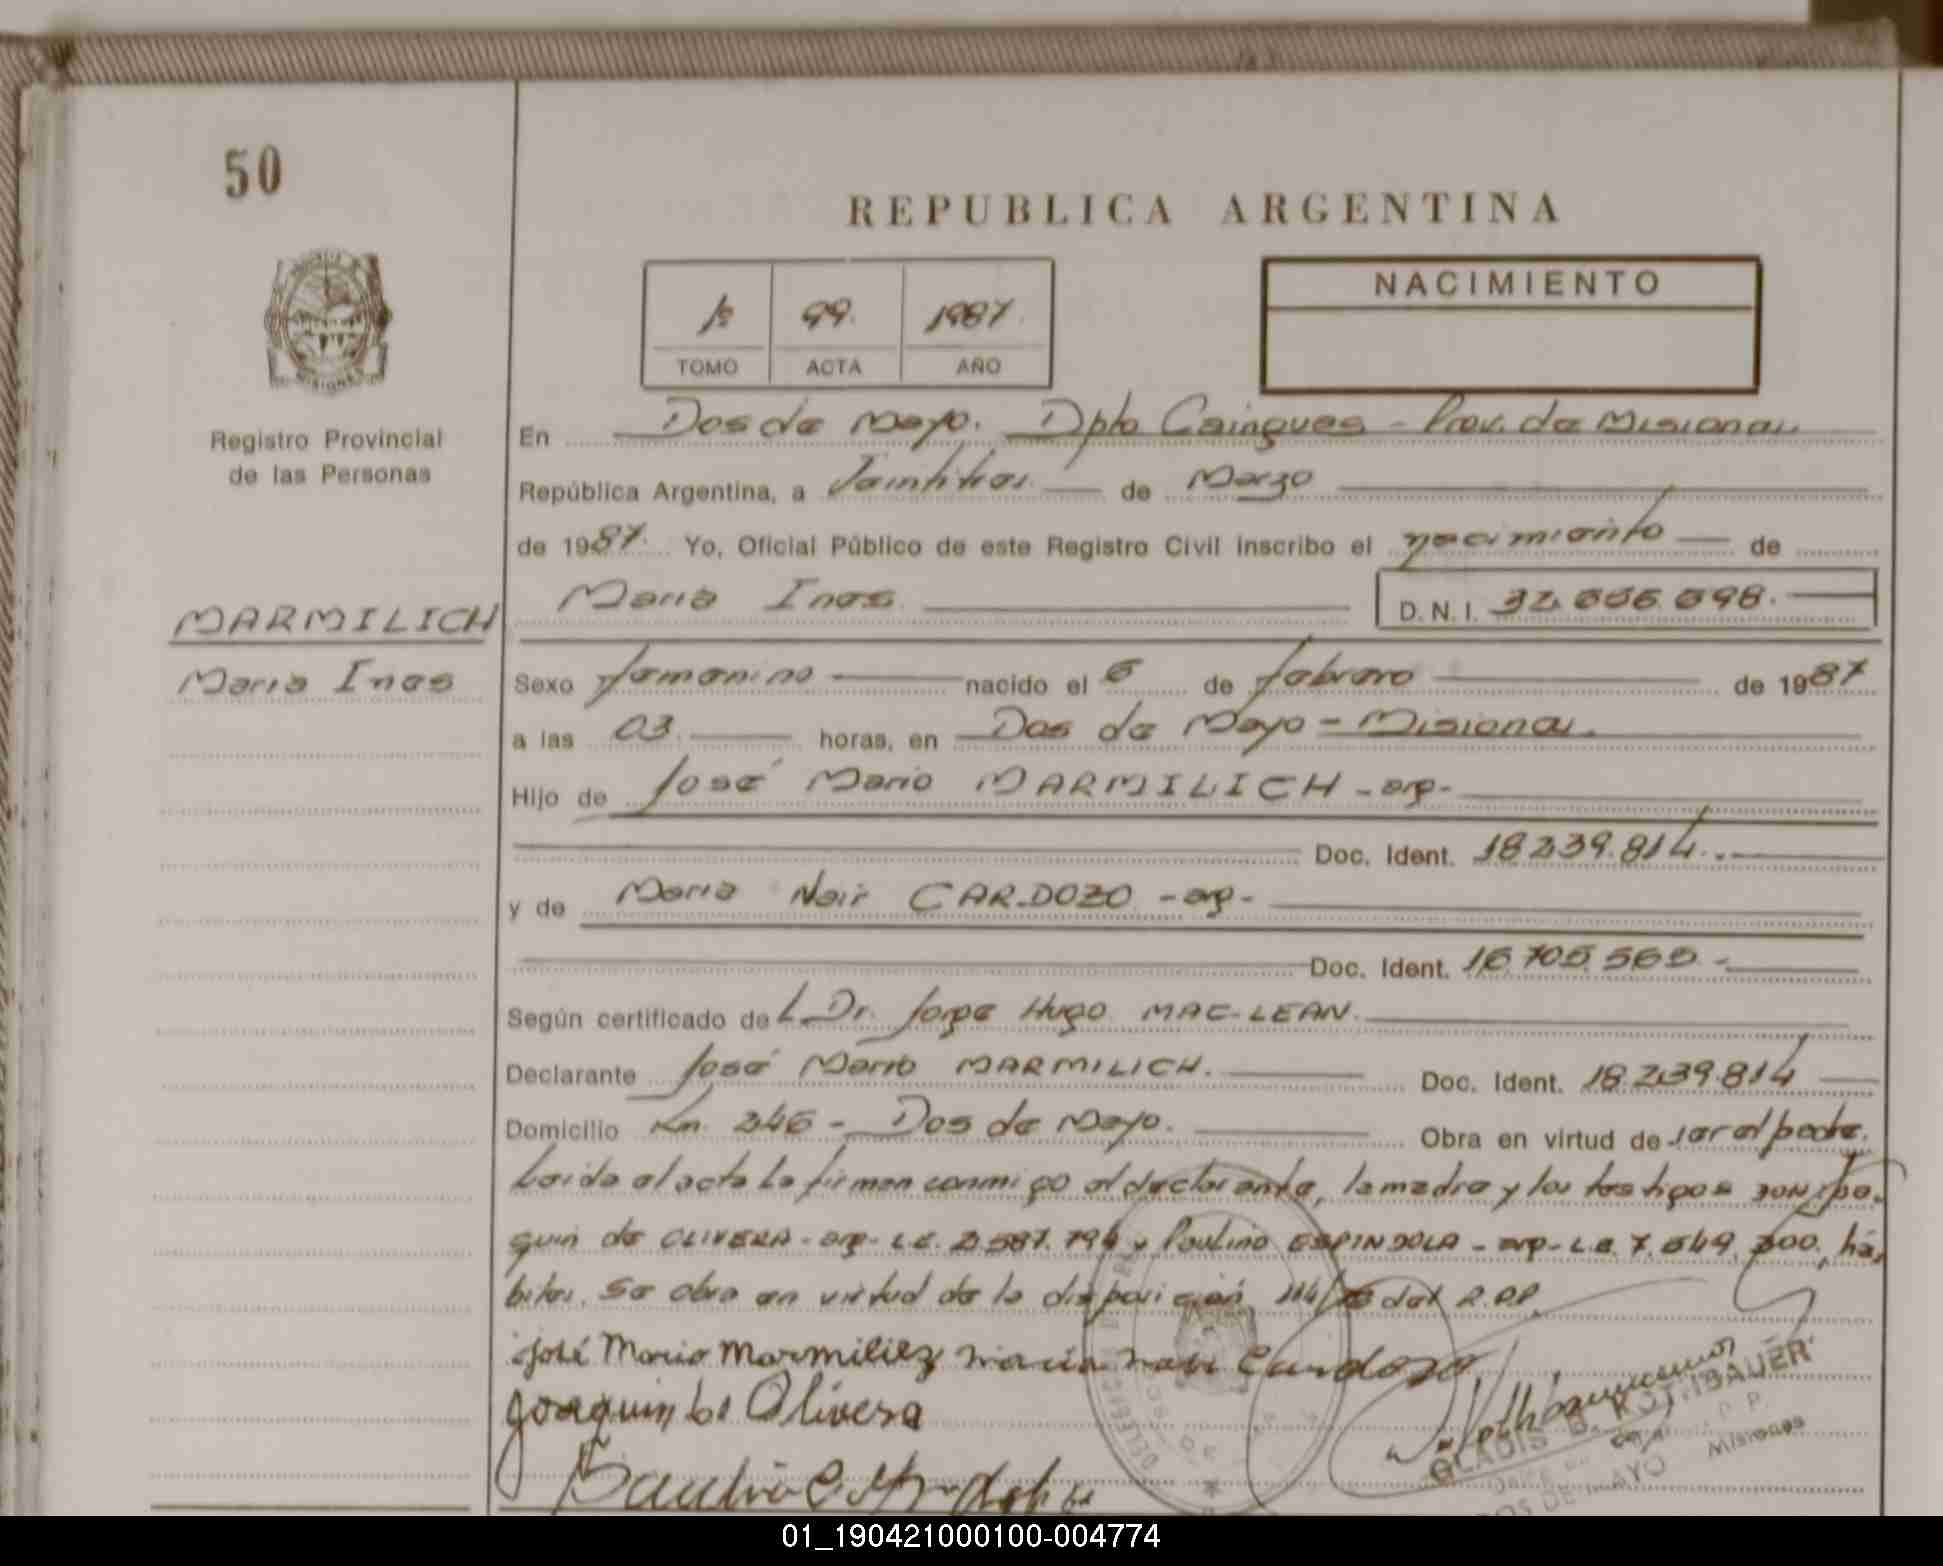 50
REPUBLICA ARGENTINA
MISIONES
Registro Provincial
de las Personas
1º 99. 1987.
TOMO ACTA AÑO
NACIMIENTO
En Dos de Mayo. Dpto Cainguas - Prov. de Misiones
República Argentina, a Veintitres de Marzo
de 1987. Yo, Oficial Público de este Registro Civil inscribo el nacimiento de
MARMILICH
Maria Ines
Maria Ines D. N. I. 32.
Sexo femenino nacido el 6 de febrero de 1987
a las 03. horas, en Dos de Mayo - Misiones.
Hijo de José Mario MARMILICH - arg-
Doc. Ident. 18.239.814.-
y de Maria Nair CARDOZO - arg-
Doc. Ident. 16.705.565.-
Según certificado del Dr. Jorge Hugo MAC-LEAN.
Declarante José Mario MARMILICH. Doc. Ident. 18.239.814
Domicilio Km. 246 - Dos de Mayo. Obra en virtud de ser el padre.
Leida el acta la firman conmigo el declarante, la madre y los testigos
de OLIVERA - arg- L.E. y Paulino ESPINDOLA - arg- L.E. 7. há-
biles. Se obra en virtud de la disposición del R.P.P.
José Mario Marmilicz Maria Nair Cardozo
Joaquin de Olivera
GLADIS B. ROTHBAUER
DOS DE MAYO Misiones
01_190421000100-004774